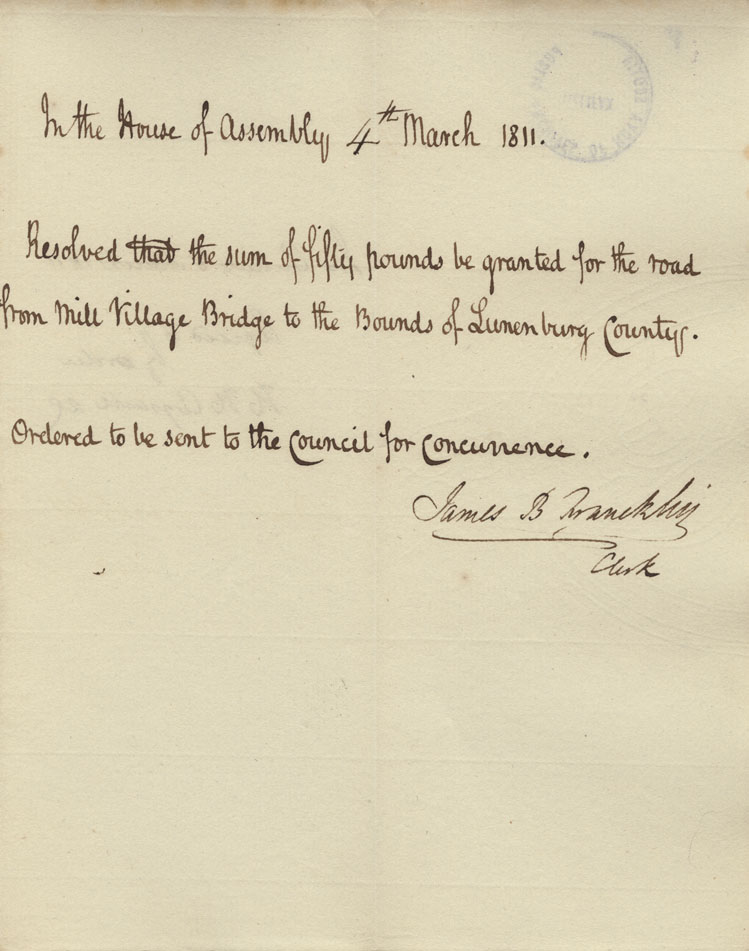 In the House of Assembly 4th March 1811.
Resolved that the sum of fifty pounds be granted for the road
from Mill Village Bridge to the Bounds of Lunenburg County.
Ordered to be sent to the Council for Concurrence.
James B Francklin
Clerk